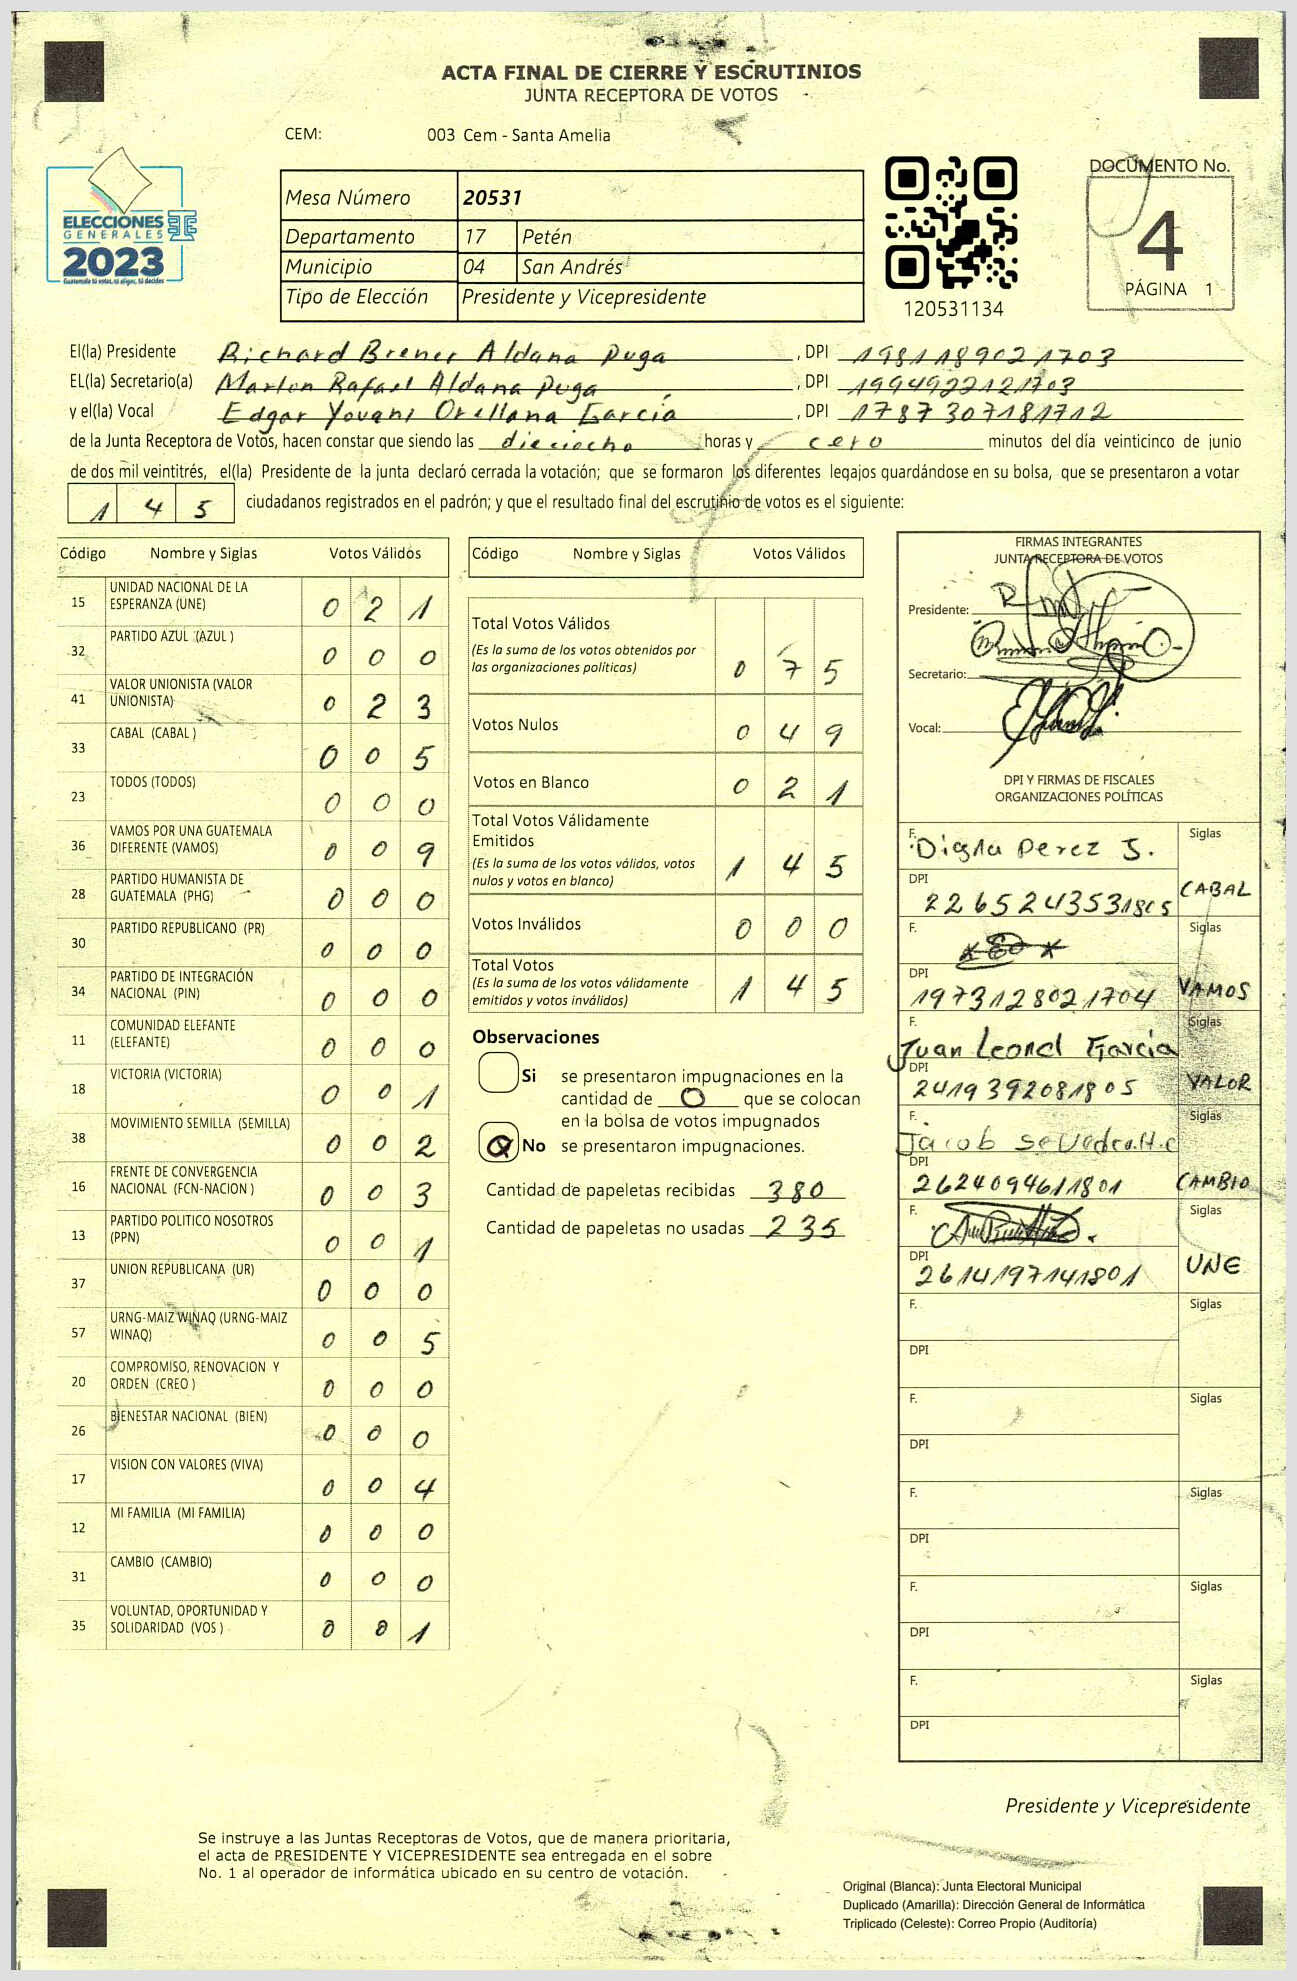 ACTA FINAL DE CIERRE Y ESCRUTINIOS
JUNTA RECEPTORA DE VOTOS
CEM: 003 Cem - Santa Amelia
ELECCIONES
GENERALES
2023
Guatemala tú votas, tú eliges, tú decides
Mesa Número 20531
Departamento 17 Petén
Municipio 04 San Andrés
Tipo de Elección Presidente y Vicepresidente
120531134
DOCUMENTO No.
4
PÁGINA 1
El(la) Presidente Richard Brener Aldana Puga, DPI 1981189021703
EL(la) Secretario(a) Marlon Rafael Aldana Puga, DPI 1994922121703
y el(la) Vocal Edgar Yovani Orellana García, DPI 1787307181712
de la Junta Receptora de Votos, hacen constar que siendo las dieciocho horas y cero minutos del día veinticinco de junio
de dos mil veintitrés, el(la) Presidente de la junta declaró cerrada la votación; que se formaron los diferentes legajos quardándose en su bolsa, que se presentaron a votar
1 4 5 ciudadanos registrados en el padrón; y que el resultado final del escrutinio de votos es el siguiente:
Código Nombre y Siglas Votos Válidos
15 UNIDAD NACIONAL DE LA ESPERANZA (UNE) 0 2 1
32 PARTIDO AZUL (AZUL ) 0 0 0
41 VALOR UNIONISTA (VALOR UNIONISTA) 0 2 3
33 CABAL (CABAL ) 0 0 5
23 TODOS (TODOS) 0 0 0
36 VAMOS POR UNA GUATEMALA DIFERENTE (VAMOS) 0 0 9
28 PARTIDO HUMANISTA DE GUATEMALA (PHG) 0 0 0
30 PARTIDO REPUBLICANO (PR) 0 0 0
34 PARTIDO DE INTEGRACIÓN NACIONAL (PIN) 0 0 0
11 COMUNIDAD ELEFANTE (ELEFANTE) 0 0 0
18 VICTORIA (VICTORIA) 0 0 1
38 MOVIMIENTO SEMILLA (SEMILLA) 0 0 2
16 FRENTE DE CONVERGENCIA NACIONAL (FCN-NACION ) 0 0 3
13 PARTIDO POLITICO NOSOTROS (PPN) 0 0 1
37 UNION REPUBLICANA (UR) 0 0 0
57 URNG-MAIZ WINAQ (URNG-MAIZ WINAQ) 0 0 5
20 COMPROMISO, RENOVACION Y ORDEN (CREO ) 0 0 0
26 BIENESTAR NACIONAL (BIEN) 0 0 0
17 VISION CON VALORES (VIVA) 0 0 4
12 MI FAMILIA (MI FAMILIA) 0 0 0
31 CAMBIO (CAMBIO) 0 0 0
35 VOLUNTAD, OPORTUNIDAD Y SOLIDARIDAD (VOS ) 0 0 1
Código Nombre y Siglas Votos Válidos
Total Votos Válidos
(Es la suma de los votos obtenidos por
las organizaciones políticas) 0 7 5
Votos Nulos 0 4 9
Votos en Blanco 0 2 1
Total Votos Válidamente
Emitidos
(Es la suma de los votos válidos, votos
nulos y votos en blanco) 1 4 5
Votos Inválidos 0 0 0
Total Votos
(Es la suma de los votos válidamente
emitidos y votos inválidos) 1 4 5
Observaciones
Si se presentaron impugnaciones en la
cantidad de 0 que se colocan
en la bolsa de votos impugnados
No se presentaron impugnaciones.
Cantidad de papeletas recibidas 380
Cantidad de papeletas no usadas 235
FIRMAS INTEGRANTES
JUNTA RECEPTORA DE VOTOS
Presidente:
Secretario:
Vocal:
DPI Y FIRMAS DE FISCALES
ORGANIZACIONES POLÍTICAS
F. Digna Perez J. Siglas
DPI 2265243531805 CABAL
F. Siglas
DPI 1973128021704 VAMOS
F. Juan Leonel García Siglas
DPI 2419392081805 VALOR
F. Jacob Siglas
DPI 2624094611801 CAMBIO
F. Siglas
DPI 2614197141801 UNE
F. Siglas
DPI
F. Siglas
DPI
F. Siglas
DPI
F. Siglas
DPI
F. Siglas
DPI
Presidente y Vicepresidente
Se instruye a las Juntas Receptoras de Votos, que de manera prioritaria,
el acta de PRESIDENTE Y VICEPRESIDENTE sea entregada en el sobre
No. 1 al operador de informática ubicado en su centro de votación.
Original (Blanca): Junta Electoral Municipal
Duplicado (Amarilla): Dirección General de Informática
Triplicado (Celeste): Correo Propio (Auditoría)